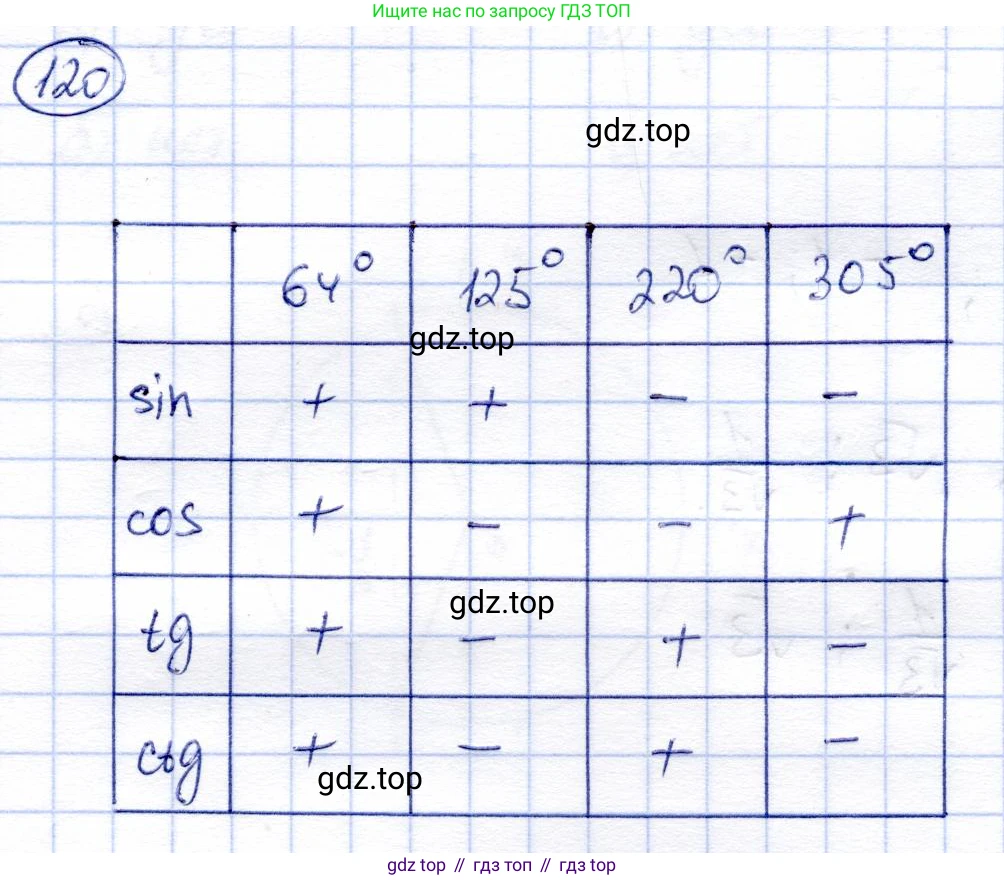 Ищите нас по запросу ГДЗ ТОП
120
gdz.top
64° 125° 220° 305°
gdz.top
sin + + − −
cos + − − +
gdz.top
tg + − + −
ctg + − + −
gdz.top
gdz top // гдз топ // гдз top